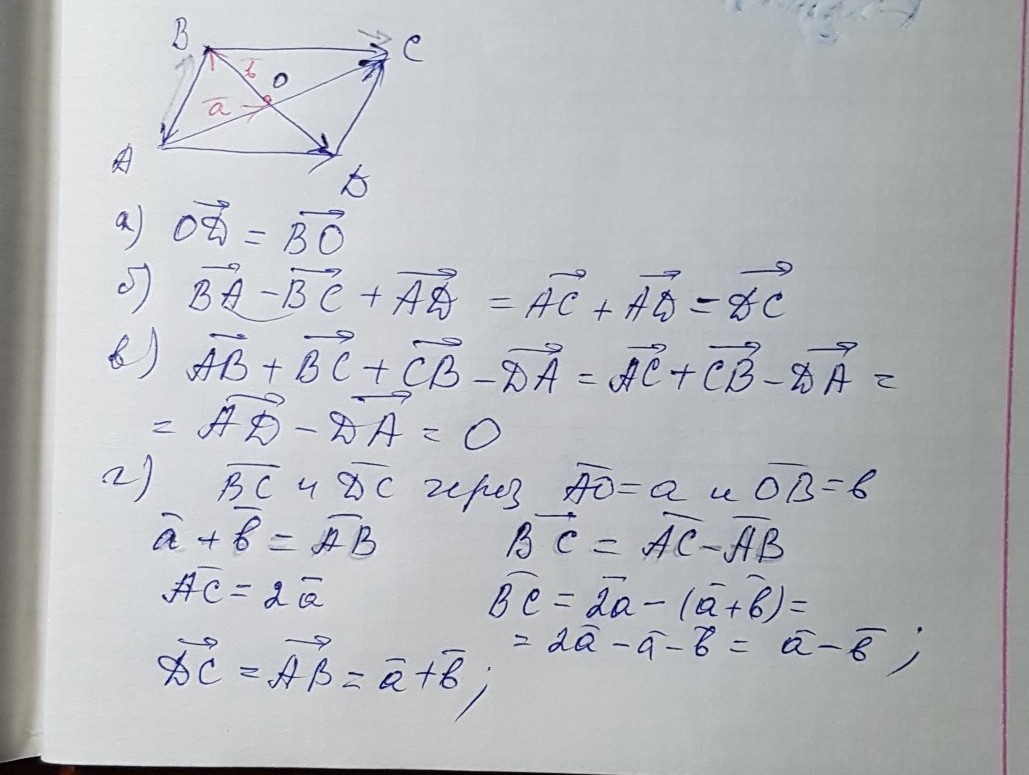 B
C
в̄
O
ā
A
D
а) O͞D⃗ = B͞O⃗
б) B͞A⃗ - B͞C⃗ + A͞D⃗ = A͞C⃗ + A͞D⃗ = D͞C⃗
в) A͞B⃗ + B͞C⃗ + C͞B⃗ - D͞A⃗ = A͞C⃗ + C͞B⃗ - D͞A⃗ =
= A͞D⃗ - D͞A⃗ = 0
г) B͞C и D͞C через A͞O = a и O͞B = в
ā + в̄ = A͞B
B͞C⃗ = A͞C - A͞B
A͞C = 2ā
B͞C = 2ā - (ā + в̄) =
= 2ā - ā - в̄ = ā - в̄ ;
D͞C⃗ = A͞B⃗ = ā + в̄ ;